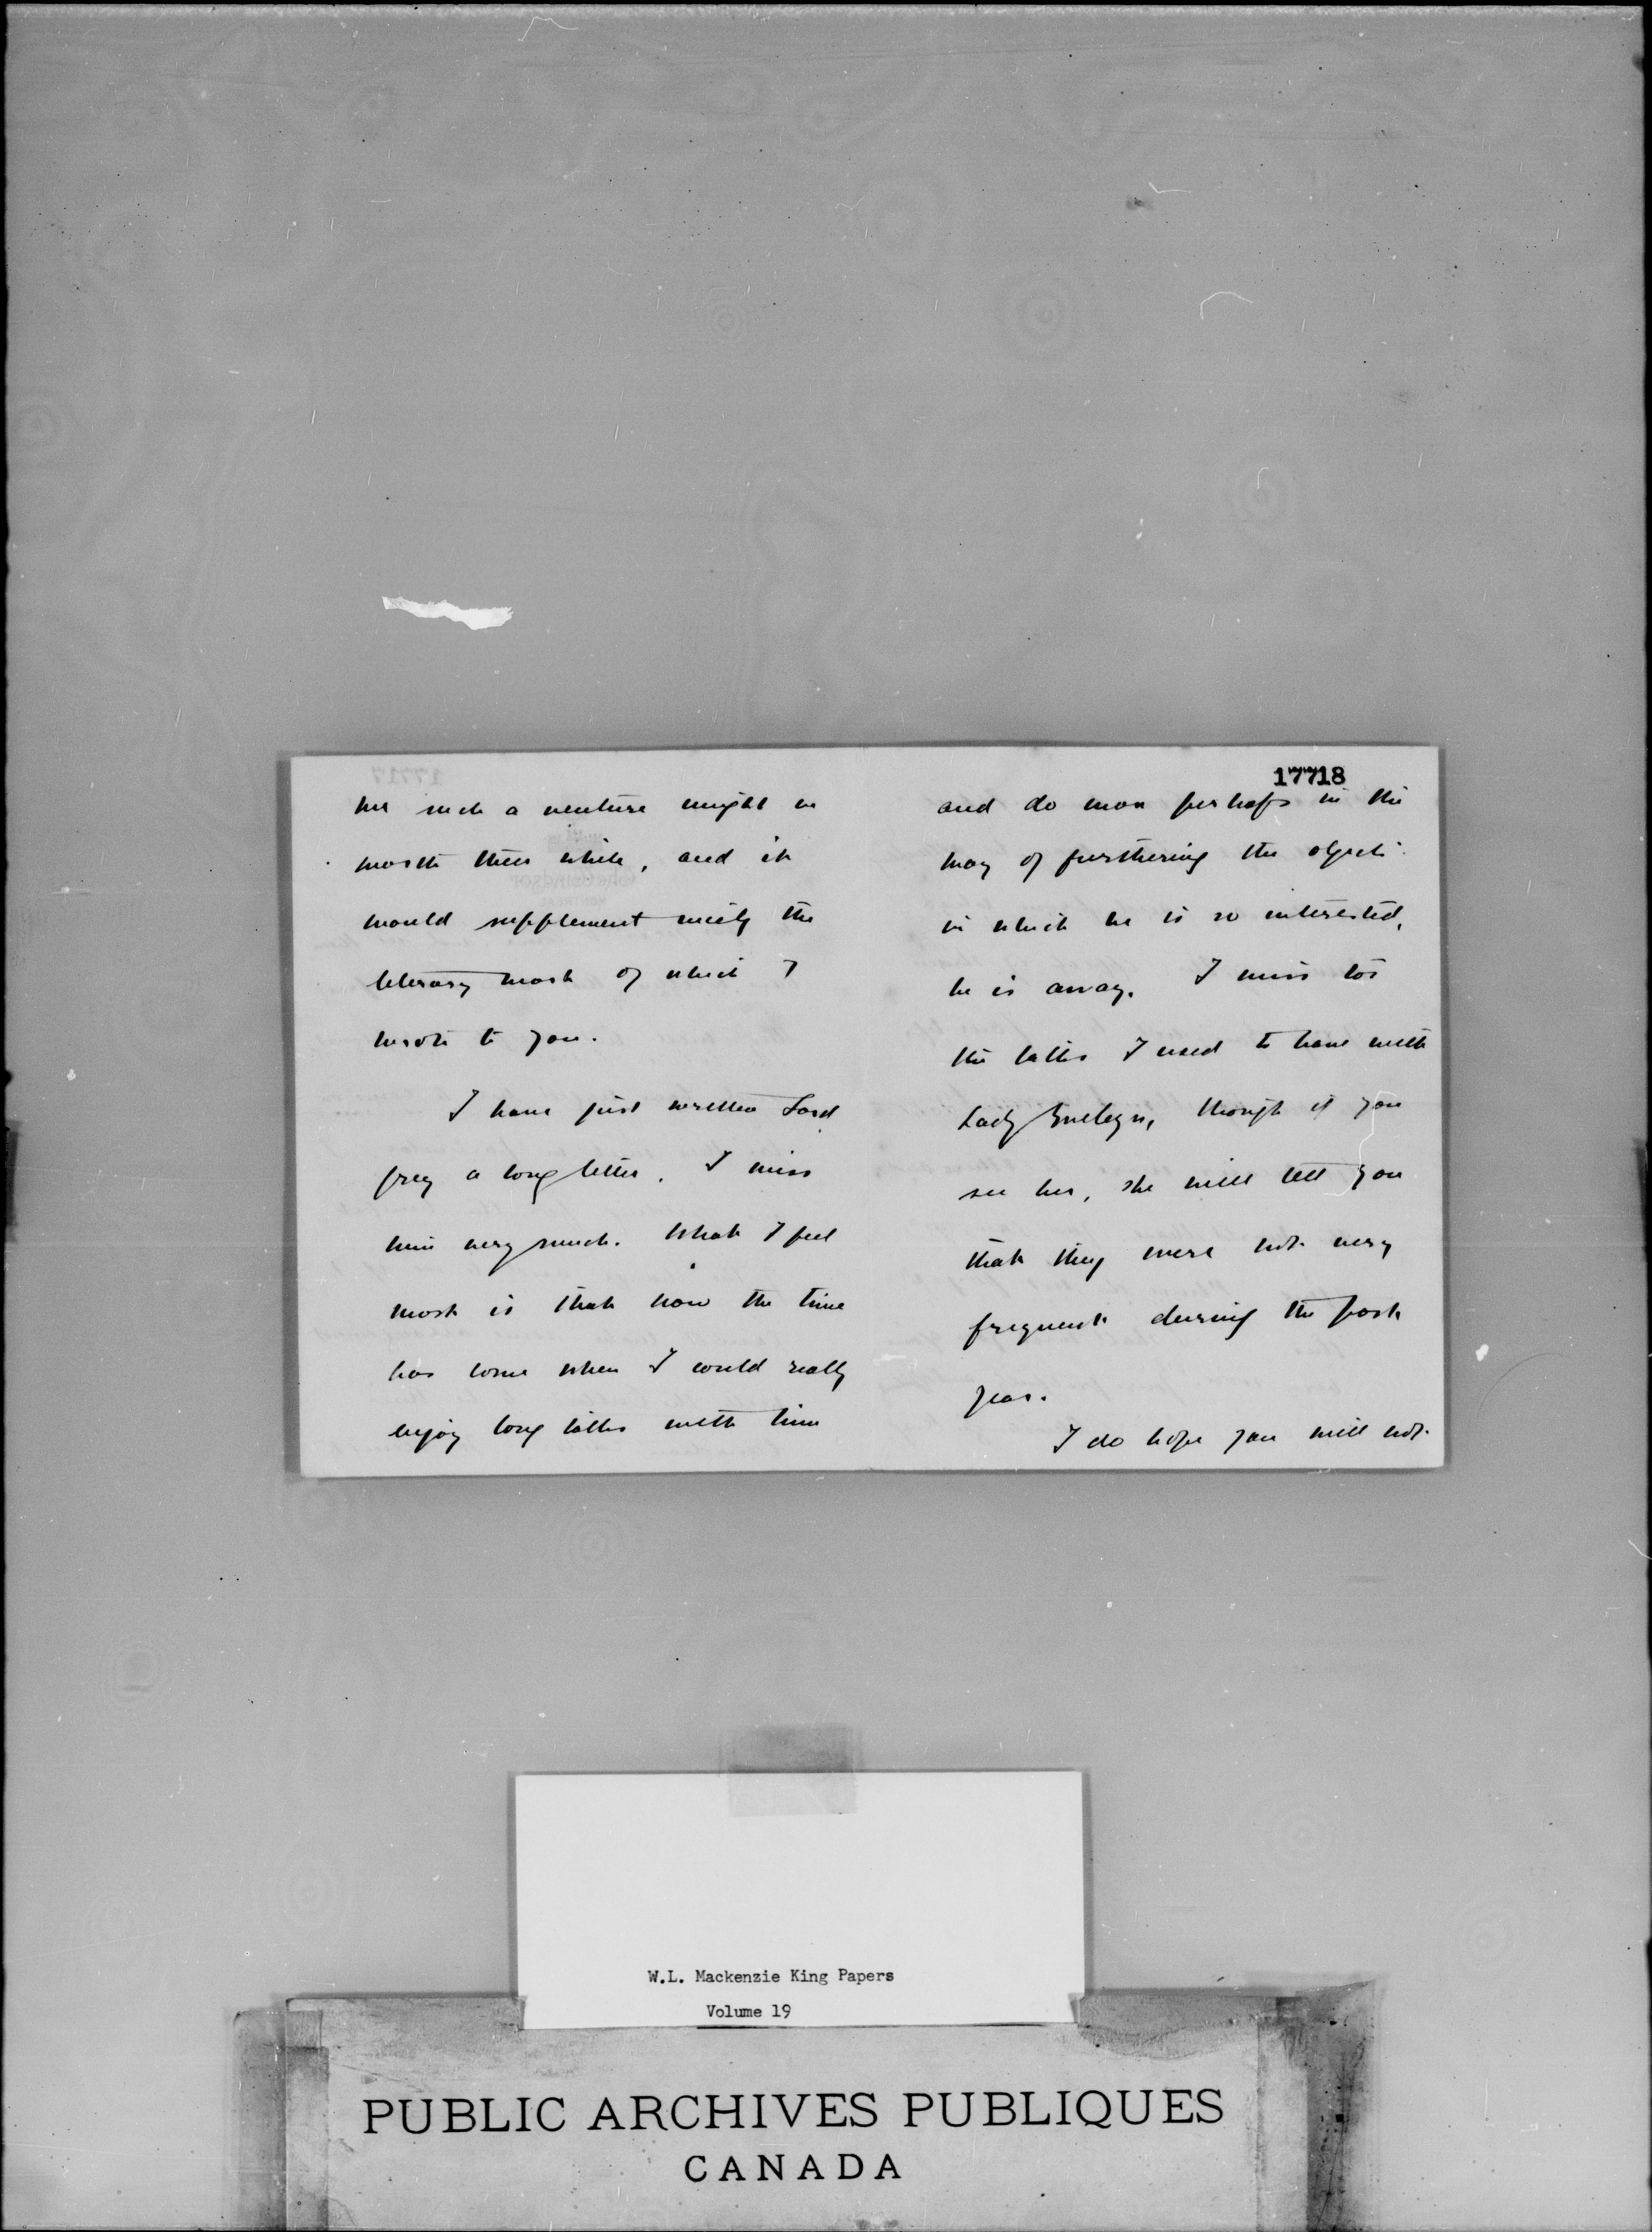 me such a venture might be
worth their while, and it
would supplement nicely the
literary work of which I
wrote to you.
I have just written Lord
Grey a long letter. I miss
him very much. What I feel
most is that now the time
has come when I could really
enjoy long talks with him
17718
and do more perhaps in the
way of furthering the objects
in which he is so interested,
he is away. I miss too
the talks I used to have with
Lady Evelyn, though if you
see her, she will tell you
that they were not very
frequent during the past
year.
I do hope you will not
W.L. Mackenzie King Papers
Volume 19
PUBLIC ARCHIVES PUBLIQUES
CANADA